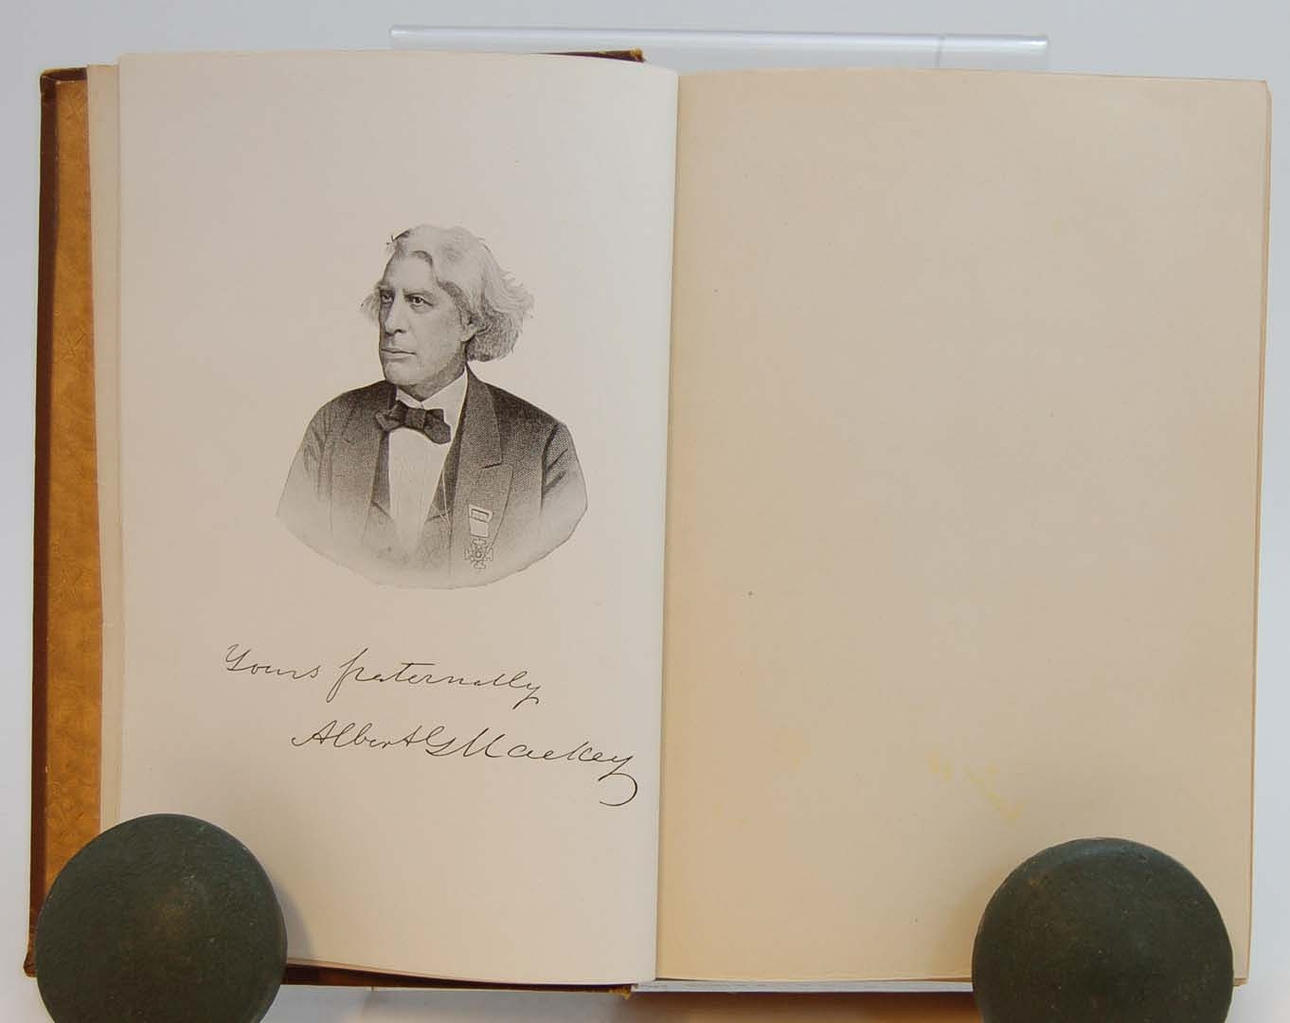 Yours fraternally
Albert G Mackey